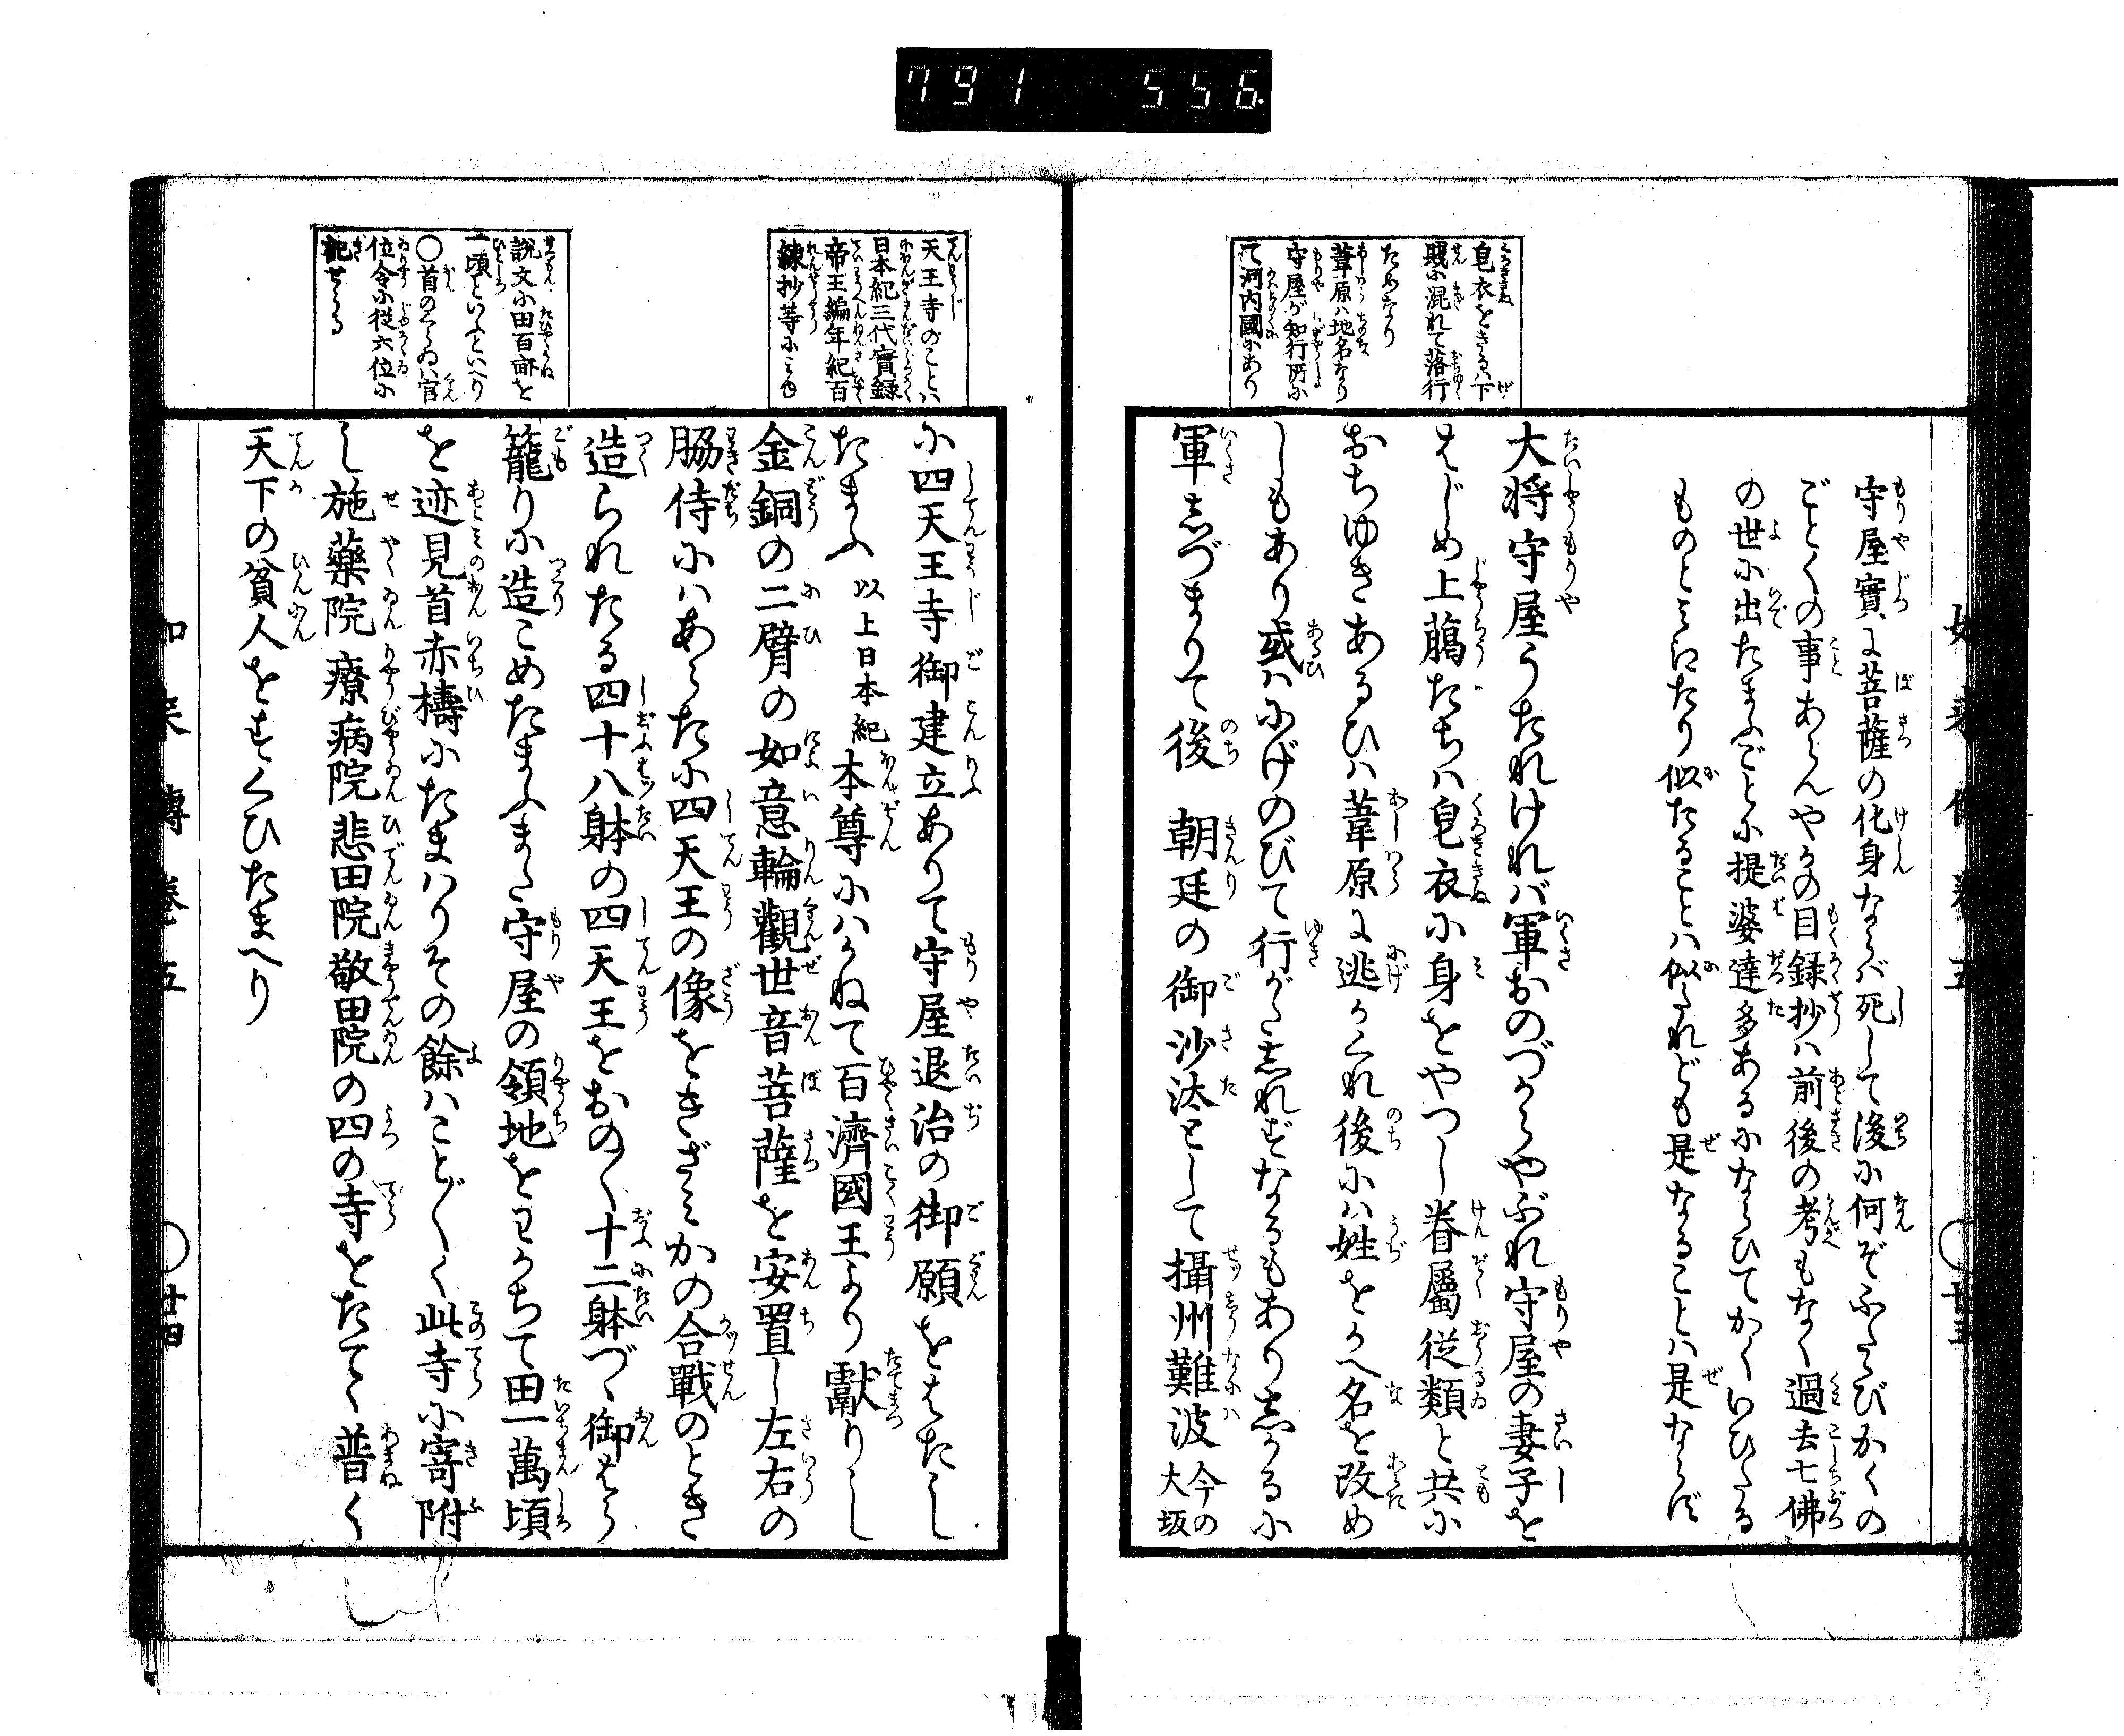 791 556
皂衣をきるハ下
賤に混れて落行
ためなり
葦原ハ地名なり
守屋が知行所に
て河内國にあり
守屋實に菩薩の化身ならバ死して後に何ぞふたゝびかくの
ごとくの事あらんやかの目録抄ハ前後の考もなく過去七佛
の世に出たまふごとに提婆達多あるにならひてかくいひたる
ものとミえたり似たることハ似たれども是なることハ是ならず
大将守屋うたれけれバ軍おのづからやぶれ守屋の妻子を
はじめ上臈たちハ皂衣に身をやつし眷屬従類と共に
おちゆきあるひハ葦原に逃かくれ後にハ姓をかへ名を改め
しもあり或ハにげのびて行がたしれずなるもありしかるに
軍しづまりて後 朝廷の御沙汰として攝州難波今の大坂
天王寺のことハ
日本紀三代實録
帝王編年紀百
練抄等にミゆ
説文に田百畝を
一頃といふといへり
〇首のくらゐハ官
位令に従六位に
記せらる
に四天王寺御建立ありて守屋退治の御願をはたし
たまふ以上日本紀本尊にハかねて百濟國王より獻りし
金銅の二臂の如意輪觀世音菩薩を安置し左右の
脇侍にハあらたに四天王の像をきざミかの合戰のとき
造られたる四十八躰の四天王をおの〱十二躰づゝ御はら
籠りに造こめたまふまた守屋の領地をわかちて田一萬頃
を迹見首赤檮にたまハりその餘ハこと〲く此寺に寄附
し施藥院療病院悲田院敬田院の四の寺をたてゝ普く
天下の貧人をすくひたまへり
如来傳巻五 〇廿四